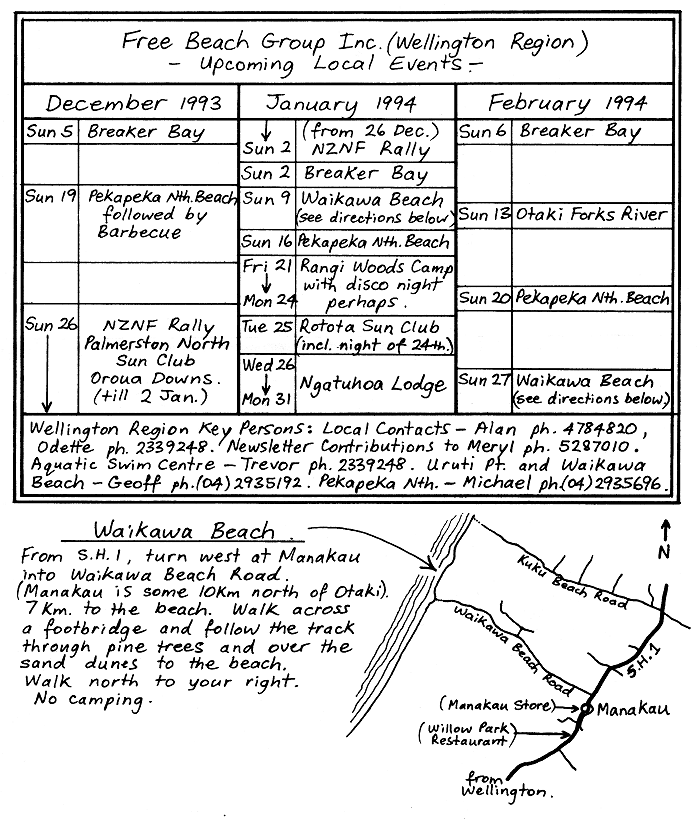 Free Beach Group Inc. (Wellington Region)
- Upcoming Local Events -
December 1993
Sun 5 Breaker Bay
Sun 19 Pekapeka Nth. Beach
followed by
Barbecue
Sun 26 NZNF Rally
Palmerston North
Sun Club
Oroua Downs.
(till 2 Jan.)
January 1994
(from 26 Dec.)
Sun 2 NZNF Rally
Sun 2 Breaker Bay
Sun 9 Waikawa Beach
(see directions below)
Sun 16 Pekapeka Nth. Beach
Fri 21 Rangi Woods Camp
with disco night
Mon 24 perhaps.
Tue 25 Rotota Sun Club
(incl. night of 24th.)
Wed 26
Ngatuhoa Lodge
Mon 31
February 1994
Sun 6 Breaker Bay
Sun 13 Otaki Forks River
Sun 20 Pekapeka Nth. Beach
Sun 27 Waikawa Beach
(see directions below)
Wellington Region Key Persons: Local Contacts - Alan ph. 4784820,
Odette ph. 2339248. Newsletter Contributions to Meryl ph. 5287010.
Aquatic Swim Centre - Trevor ph. 2339248. Uruti Pt. and Waikawa
Beach - Geoff ph.(04)2935192. Pekapeka Nth. - Michael ph.(04)2935696.
Waikawa Beach.
From S.H.1, turn west at Manakau
into Waikawa Beach Road.
(Manakau is some 10Km north of Otaki).
7 Km. to the beach. Walk across
a footbridge and follow the track
through pine trees and over the
sand dunes to the beach.
Walk north to your right.
No camping.
N
Kuku Beach Road
Waikawa Beach Road
S.H.1
(Manakau Store)
Manakau
(Willow Park
Restaurant)
from
Wellington.